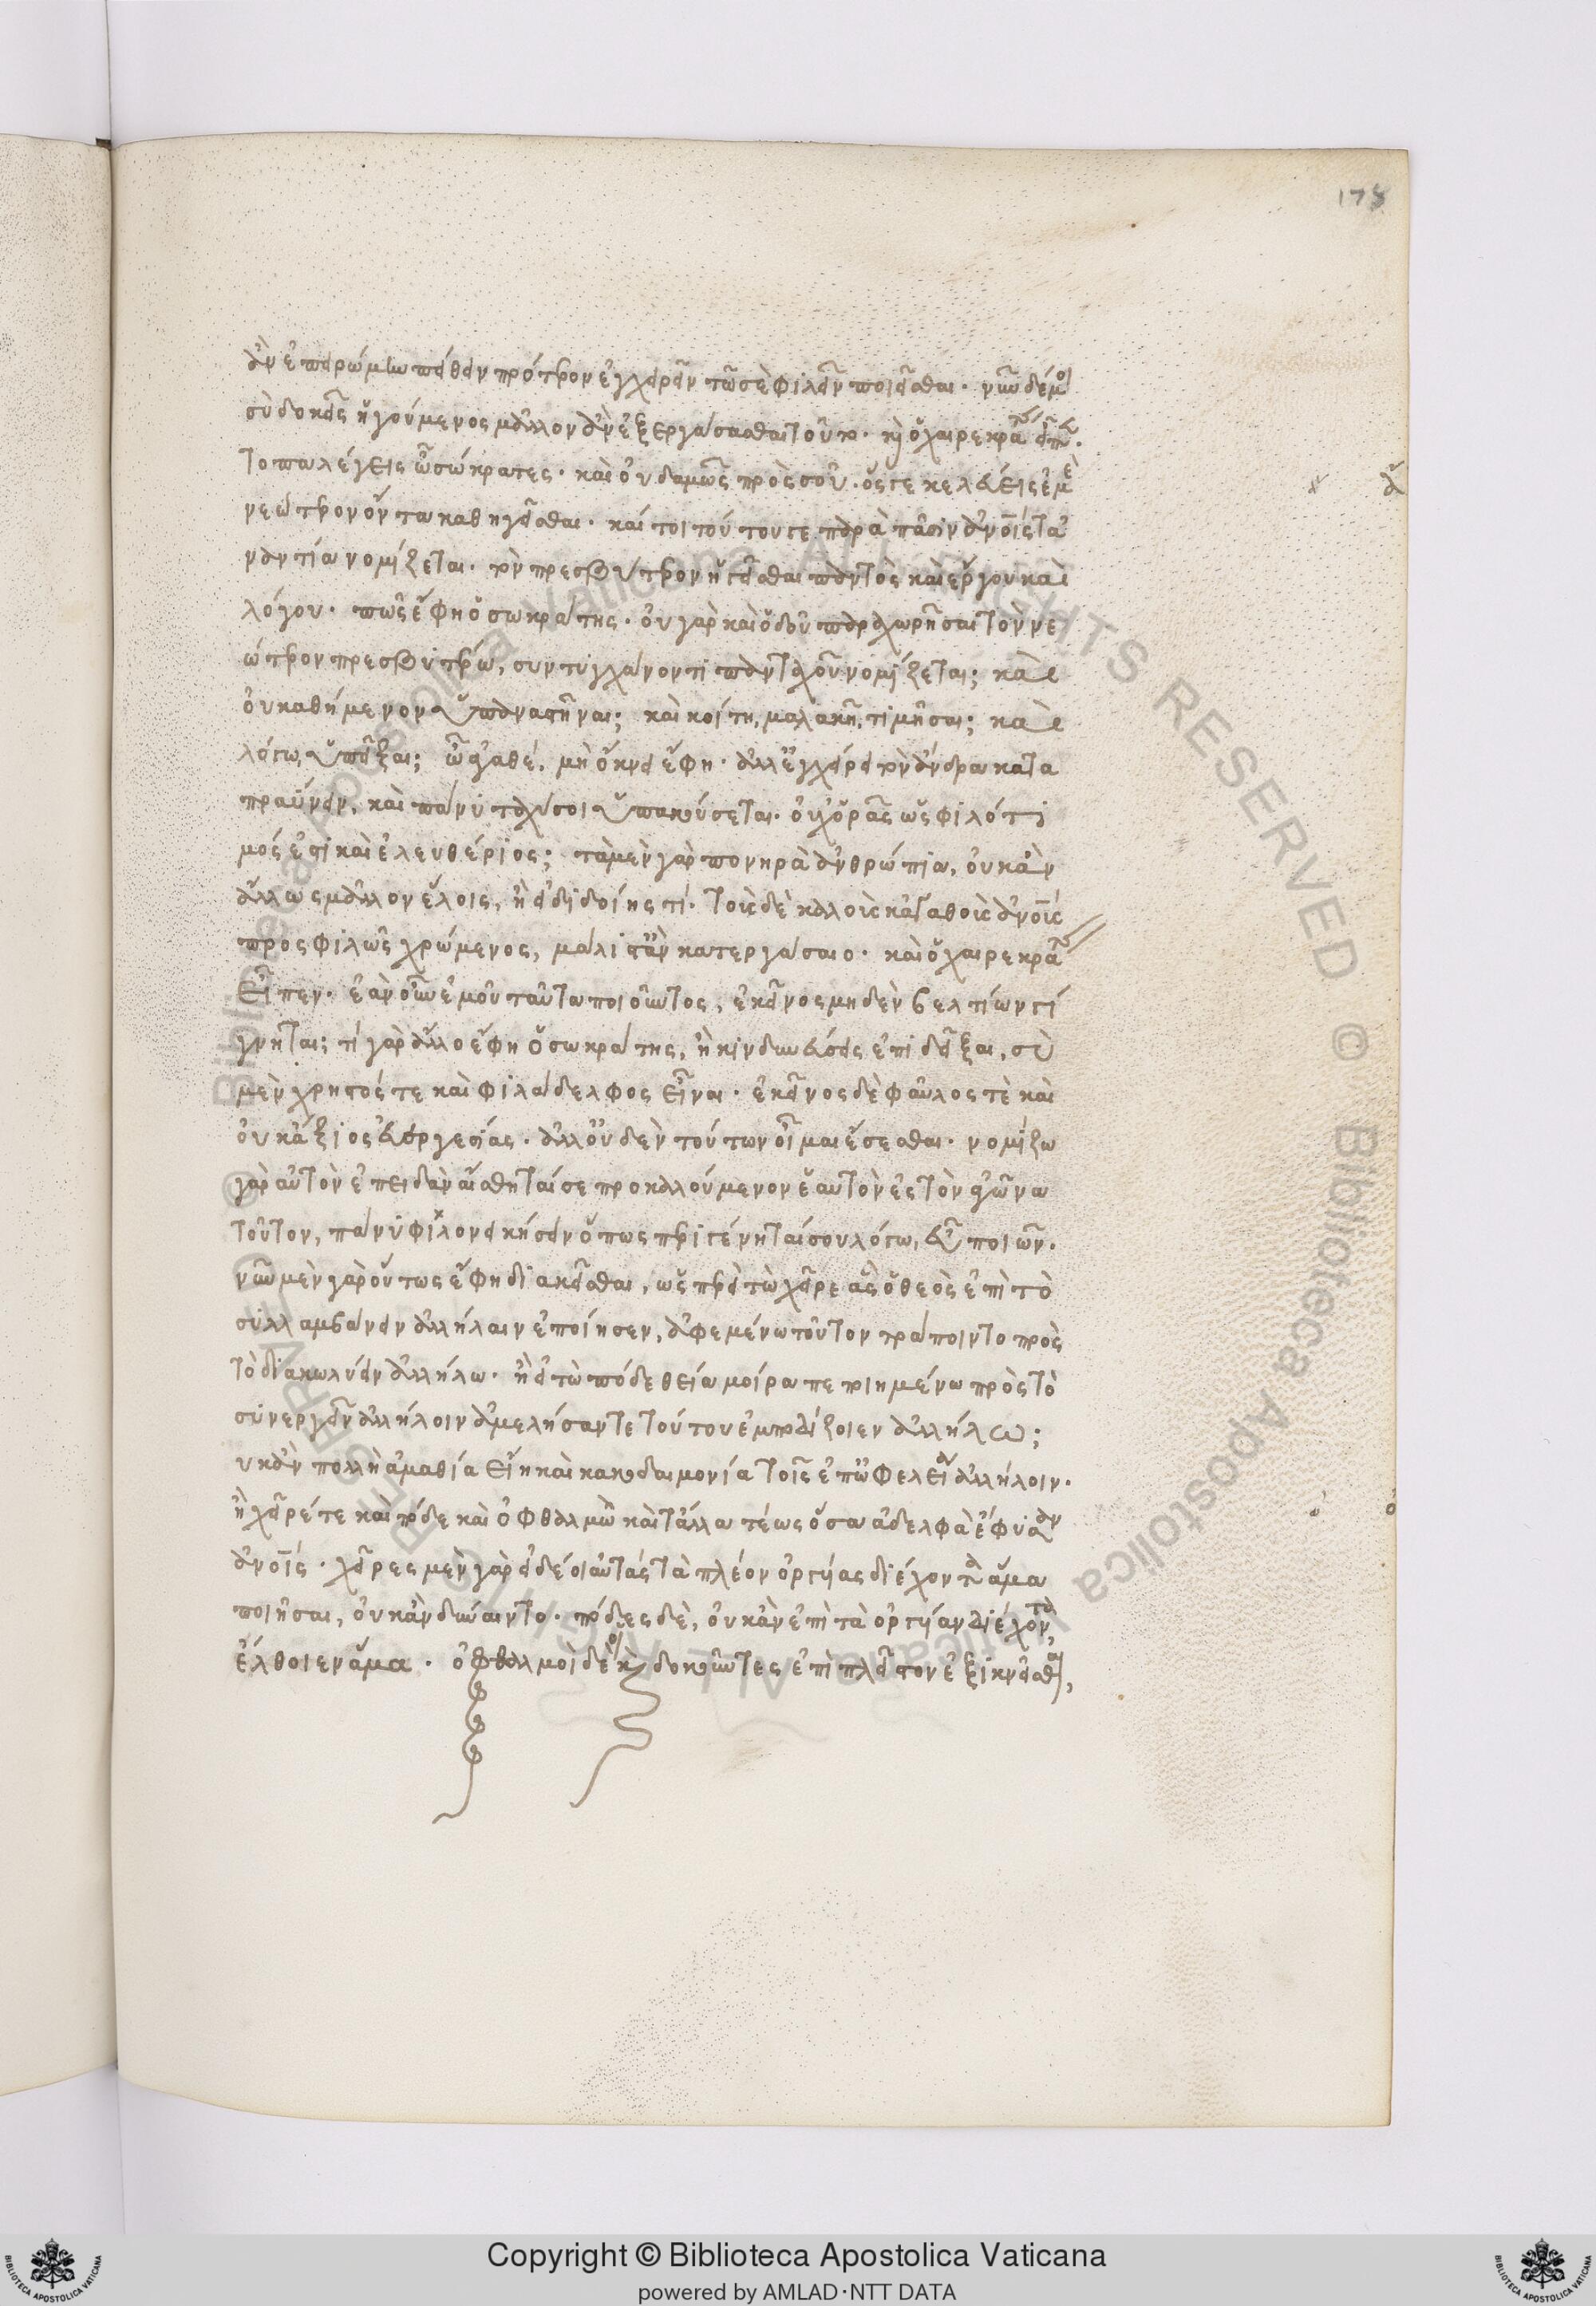 178
ἂν ἐπειρώμην πείθειν πρότερον ἐγχειρεῖν τῷ σὲ φιλεῖν ποιεῖσθαι. νῦν δέ μοι
σὺ δοκεῖς ἡγούμενος μᾶλλον ἂν ἐξεργάσασθαι τοῦτο. καὶ ὁ χαιρεκράτης εἶπεν.
ἄτοπα λέγεις ὦ σώκρατες. καὶ οὐδαμῶς πρὸς σοῦ. ὅς γε κελεύεις ἐμὲ
νεώτερον ὄντα καθηγεῖσθαι. καί τοι τούτου γε παρὰ πᾶσιν ἀνοις τἀ
ναντία νομίζεται. τὸν πρεσβύτερον ἡγεῖσθαι παντὸς καὶ ἔργου καὶ
λόγου. πῶς ἔφη ὁ σωκράτης. οὐ γὰρ καὶ ὁδοῦ παραχωρῆσαι τὸν νε
ώτερον πρεσβυτέρω, συντυγχάνοντι πανταχοῦ νομίζεται; καὶ
οὐ καθήμενον ὑπαναστῆναι; καὶ κοίτη, μαλακῆ, τιμῆσαι; καὶ
λόγω, ὑπεῖξαι; ὦ ἀγαθέ, μὴ ὄκνει ἔφη. ἀλλ' ἐγχείρει τὸν ἄνδρα κατα
πραΰνειν, καὶ πάνυ ταχύ σοι ὑπακούσεται. οὐχ ὁρᾶς ὡς φιλότι
μός ἐστι καὶ ἐλευθέριος; τὰ μὲν γὰρ πονηρὰ ἀνθρώπια, οὐκ ἂν
ἄλλως μᾶλλον ἕλοις, ἢ εἰ διδοίης τί. τοὶς δὲ καλοὶς κἀγαθοὶς ἀνοις
προσφιλῶς χρώμενος, μάλιστ' ἂν κατεργάσαιο. καὶ ὁ χαιρεκράτης
εἶπεν. ἐὰν οὖν ἐμοῦ ταῦτα ποιοῦντος, ἐκεῖνος μηδὲν βελτίων γί
γνηται; τί γὰρ ἄλλο ἔφη ὁ σωκράτης, ἢ κινδυνεύσεις ἐπιδεῖξαι, σὺ
μὲν χρηστός τε καὶ φιλάδελφος εἶναι. ἐκεῖνος δὲ φαῦλος τὲ καὶ
οὐκ ἄξιος εὐεργεσίας. ἀλλ' οὐδὲν τούτων οἶμαι ἔσεσθαι. νομίζω
γὰρ αὐτὸν ἐπειδὰν αἴσθηταί σε προκαλούμενον ἑαυτὸν ἐς τὸν ἀγῶνα
τοῦτον, πάνυ φιλονεικήσειν ὅπως περιγένηταί σου λόγω, εὖ ποιῶν.
νῦν μὲν γὰρ οὕτως ἔφη διακεῖσθαι, ὡς περεὶ τὼ χεῖρε ἃς ὁ θεὸς ἐπὶ τὸ
συλλαμβάνειν ἀλλήλαιν ἐποίησεν, ἀφεμένω τοῦτον τράποιντο πρὸς
τὸ διακωλύειν ἀλλήλω. ἢ εἰ τὼ πόδε θεία μοίρα πεποιημένω πρὸς τὸ
συνεργεῖν ἀλλήλοιν ἀμελήσαντε τούτου ἐμποδίζοιεν ἀλλήλω;
υκ ἂν πολλὴ ἀμαθία εἴη καὶ κακοδαιμονία τοῖς ἐπ' ὠφελεία ἀλλήλοιν.
ἢ χεῖρέ τε καὶ πόδε καὶ ὀφθαλμὼ καὶ τἄλλα τέως ὅσα ἀδελφὰ ἔφυσεν
ἀνοις. χεῖρες μὲν γὰρ εἰ δέοι αὐτάς τὰ πλέον ὀργυίας διέχοντα ἅμα
ποιῆσαι, οὐκ ἂν δύναιντο. πόδες δὲ, οὐκ ἂν ἐπὶ τὰ ὀργυίαν διέχοντα,
ἔλθοιεν ἅμα. ὀφθαλμοὶ δὲ οἱ καὶ δοκοῦντες ἐπὶ πλεῖστον ἐξικνεῖσθαι,